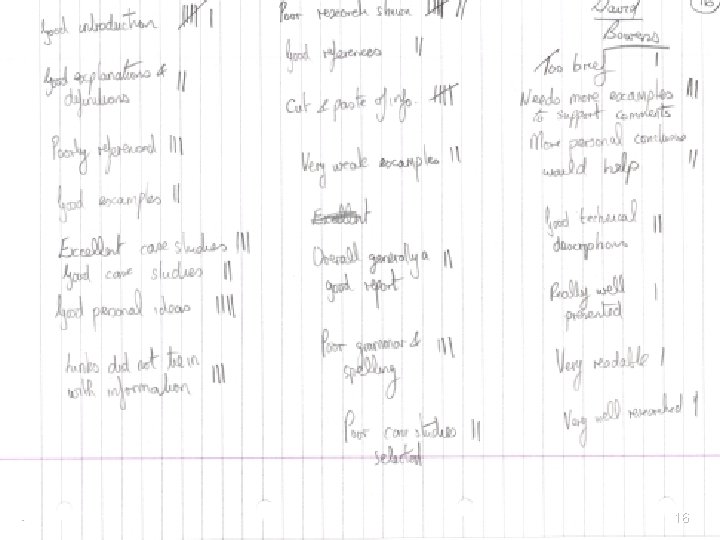 Good introduction 𝍸 |
Good explanations &
definitions ||
Poorly referenced |||
Good examples ||
Excellent case studies |||
Good case studies ||
Good personal ideas ||||
Links did not tie in
with information |||
Poor research shown 𝍸 ||
Good references ||
Cut & paste of info. 𝍸
Very weak examples ||
Excellent
Overall generally a
good report ||
Poor grammar &
spelling |||
Poor case studies ||
selected
David
Bowers
16
Too brief |
Needs more examples |||
to support comments
More personal conclusions
would help ||
Good technical
descriptions ||
Really well
presented |
Very readable |
Very well researched |
16